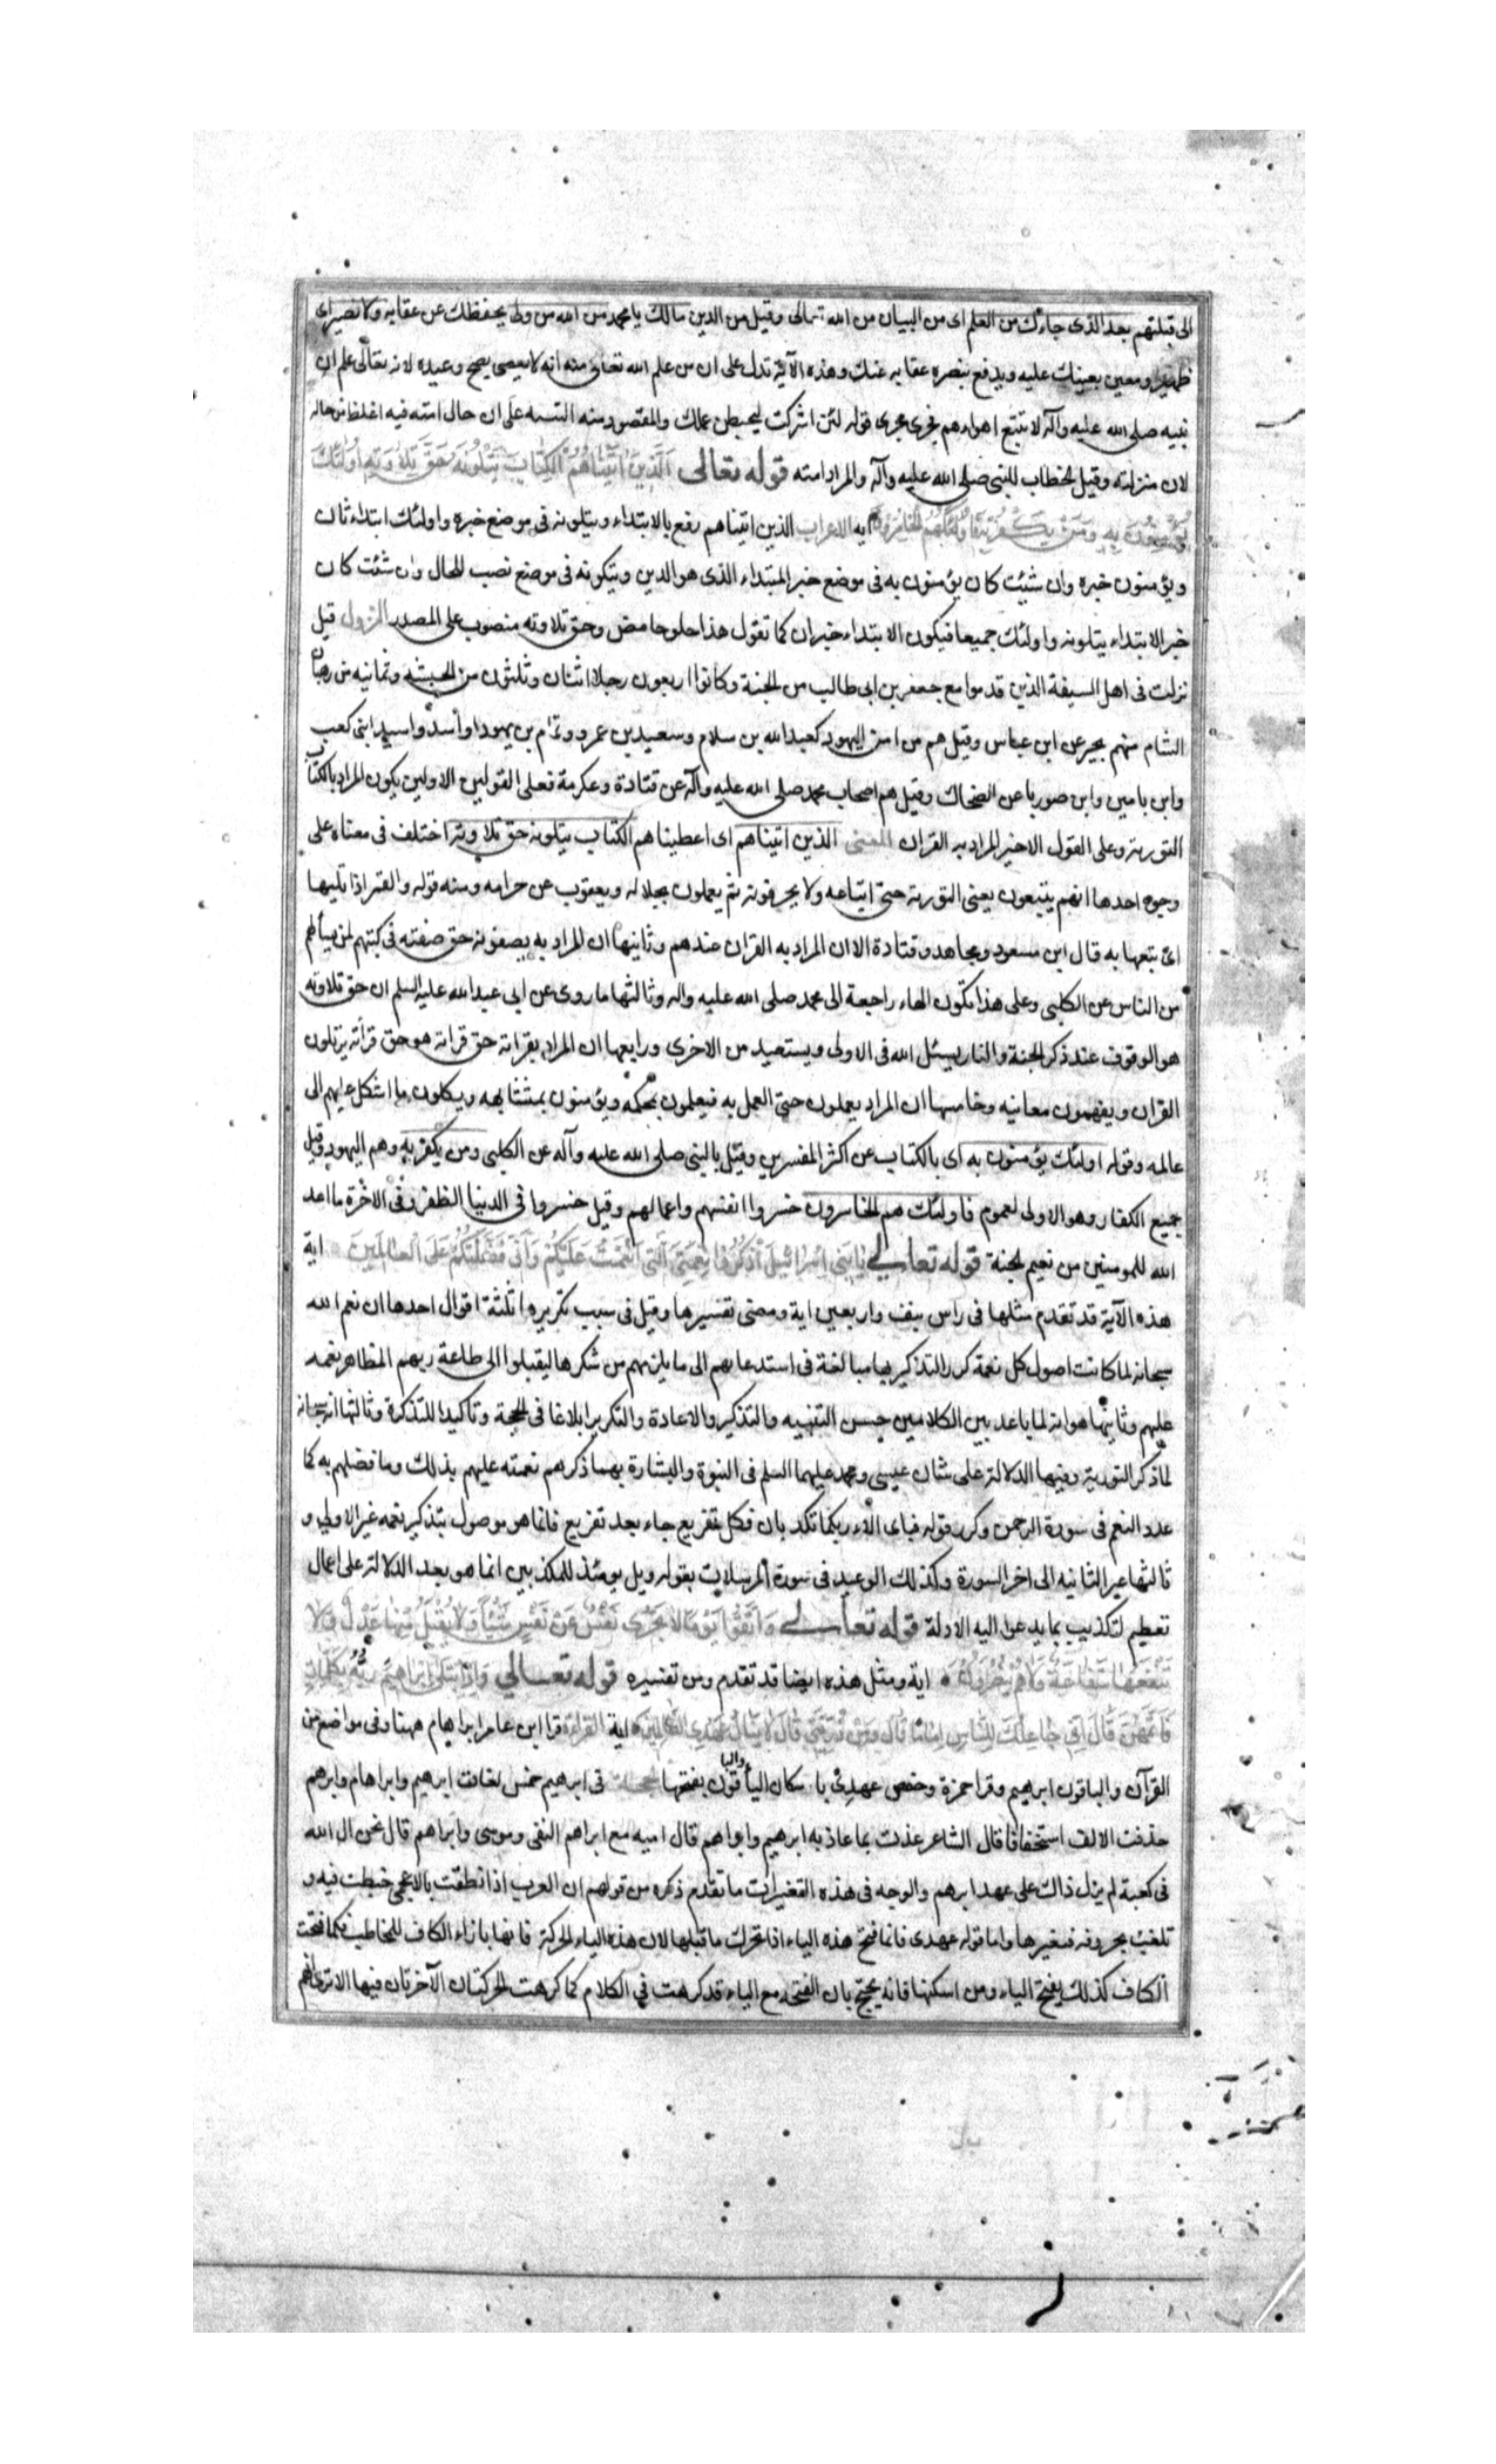 الى قبلتهم بعد الذى جاءك من العلم اى من البيان من الله تعالى وقيل من الدين مالك يا محمد من الله من ولى يحفظك عن عقابه ولا نصير اى
ظهير ومعين يعينك عليه ويدفع بنصره عقابه عنك وهذه الآية تدل على ان من علم الله تعالى منه انه لا يعصى يصح وعيده لانه تعالى علم ان
نبيه صلى الله عليه وآله لا يتبع اهواءهم فجرى مجرى قوله لئن اشركت ليحبطن عملك والمقصود منه التنبيه على ان حال امته فيه اغلظ من حاله
لان منزلته وقيل الخطاب للنبى صلى الله عليه وآله والمراد امته قوله تعالى الَّذِينَ اٰتَيْنَاهُمُ الْكِتَابَ يَتْلُونَهُ حَقَّ تِلَاوَتِهِ اُولٰئِكَ
يُؤْمِنُونَ بِهِ وَمَنْ يَكْفُرْ بِهِ فَاُولٰئِكَ هُمُ الْخَاسِرُونَ ايه الاعراب الذين اتيناهم رفع بالابتداء ويتلونه فى موضع خبره واولئك ابتداء ثان
ويؤمنون خبره وان شئت كان يؤمنون به فى موضع خبر المبتداء الذى هو الذين ويتلونه فى موضع نصب للحال وان شئت كان
خبر الابتداء يتلونه واولئك جميعا فيكون الابتداء خبران كما تقول هذا حلو حامض وحق تلاوته منصوب على المصدر النزول قيل
نزلت فى اهل السيفة الذين قدموا مع جعفر بن ابى طالب من الجنة وكانوا اربعون رجلا اثنان وثلثون من الحبشه وثمانيه من رهبان
الشام منهم بحير عن ابن عباس وقيل هم من امن اليهود كعبد الله بن سلام وسعيد بن عمرو وتمام بن يهودا واسد واسيد ابنى كعب
وابن يامين وابن صوريا عن الضحاك وقيل هم اصحاب محمد صلى الله عليه وآله عن قتادة وعكرمة فعلى القولين الاولين يكون المراد بالكتاب
التورية وعلى القول الاخير المراد به القران المعنى الذين اتيناهم اى اعطيناهم الكتاب يتلونه حق تلاوته اختلف فى معناه على
وجوه احدها انهم يتبعون يعنى التورية حق اتباعه ولا يحرفونه ثم يعملون بحلاله ويعقوب عن حرامه ومنه قوله والقمر اذا تليها
اى تبعها به قال ابن مسعود ومجاهد وقتادة الا ان المراد به القران عندهم وثانيها ان المراد به يصفونه حق صفته فى كتبهم لمن يسألهم
من الناس عن الكلبى وعلى هذا تكون الهاء راجعة الى محمد صلى الله عليه واله وثالثها ما روى عن ابى عبد الله عليه السلم ان حق تلاوته
هو الوقوف عند ذكر الجنة والنار يسئل الله فى الاولى ويستعيد من الاخرى ورابعها ان المراد يقرانه حق قرانه هو حق قرأته يرتلون
القران ويفهمون معانيه وخامسها ان المراد يعملون حق العمل به فيعلمون بمحكمه ويؤمنون بمتشابهه ويكلون ما اشكل عليهم الى
عالمه وقوله اولئك يؤمنون به اى بالكتاب عن اكثر المفسرين وقيل بالنبى صلى الله عليه وآله عن الكلبى ومن يكفر به وهم اليهود وقيل
جميع الكفار وهو الاولى لعموم فاولئك هم الخاسرون خسروا انفسهم واعمالهم وقيل خسروا فى الدنيا الظفر وفى الاخرة ما اعد
الله للمومنين من نعيم لجنة قوله تعالى يٰا بَنِى اِسْرائيلَ اذْكُرُوا نِعْمَتِىَ الَّتِى اَنْعَمْتُ عَلَيْكُمْ وَاَنِّى فَضَّلْتُكُمْ عَلَى الْعٰالَمِينَ اية
هذه الآية قد تقدم مثلها فى راس نيف واربعين اية ومضى تفسيرها وقيل فى سبب تكريرها ثلثة اقوال احدها ان نعم الله
سبحانه لما كانت اصول كل نعمة كرر التذكير بها مبالغة فى استدعائهم الى ما يلزمهم من شكرها ليقبلوا الى طاعة ربهم المظاهر نعمه
عليهم وثانيها هو انه لما باعد بين الكلامين حسن التنبيه والتذكير والاعادة والتكرير ابلاغا فى الحجة وتاكيدا للتذكرة وثالثها انه سبحانه
لما ذكر التورية وفيها الدلالة على شان عيسى ومحمد عليهما السلم فى النبوة والبشارة بهما ذكرهم نعمته عليهم بذلك وما فضلهم به كما
عدد النعم فى سورة الرحمن وكرر قوله فباى الاء ربكما تكذبان فكل تقريع جاء بعد تقريع فانما هو موصول بتذكير نعمه غير الاولى و
ثالثها غير الثانيه الى اخر السورة وكذلك الوعيد فى سورة المرسلات بقوله ويل يومئذ للمكذبين انما هو بعد الدلالة على اعمال
تعظيم لتكذيب بما يدعوا اليه الادلة قوله تعالى وَاتَّقُوا يَوْمًا لَا تَجْزِى نَفْسٌ عَنْ نَفْسٍ شَيْئًا وَلَا يُقْبَلُ مِنْهَا عَدْلٌ وَلَا
تَنْفَعُهَا شَفَاعَةٌ وَلَا هُمْ يُنْصَرُونَ اية ومثل هذه ايضا قد تقدم ومن تفسيره قوله تعالى وَاِذِ ابْتَلَى اِبْرَاهِيمَ رَبُّهُ بِكَلِمَاتٍ
فَاَتَمَّهُنَّ قَالَ اِنِّى جَاعِلُكَ لِلنَّاسِ اِمَامًا قَالَ وَمِنْ ذُرِّيَّتِى قَالَ لَا يَنَالُ عَهْدِى الظَّالِمِينَ اية القراءة قرا ابن عامر ابراهام ههنا وفى مواضع من
القرآن والباقون ابرهيم وقرا حمزة وحفص عهدى باسكان الياء والباقون بفتحها الحجة فى ابرهيم خمس لغات ابرهيم وابراهام وابرهم
حذفت الالف استخفافا قال الشاعر عذت بما عاذ به ابرهيم وابراهم قال اميه مع ابراهم التقى وموسى وابراهم قال نحن ال الله
فى كعبة لم يزل ذاك على عهد ابرهم والوجه فى هذه التغيرات ما تقدم ذكره من قولهم ان العرب اذا نطقت بالاعجمى خبطت فيه و
تلعبت بحروفه فتغيرها واما قوله عهدى فانما فتح هذه الياء اذا تحرك ما قبلها لان هذه الياء الحركة فانها بازاء الكاف للمخاطب فكما فتحت
الكاف كذلك يفتح الياء ومن اسكنها فانه يحتج بان الفتحه مع الياء قد كرهت فى الكلام كما كرهت الحركتان الآخرتان فيها الا ترى انهم